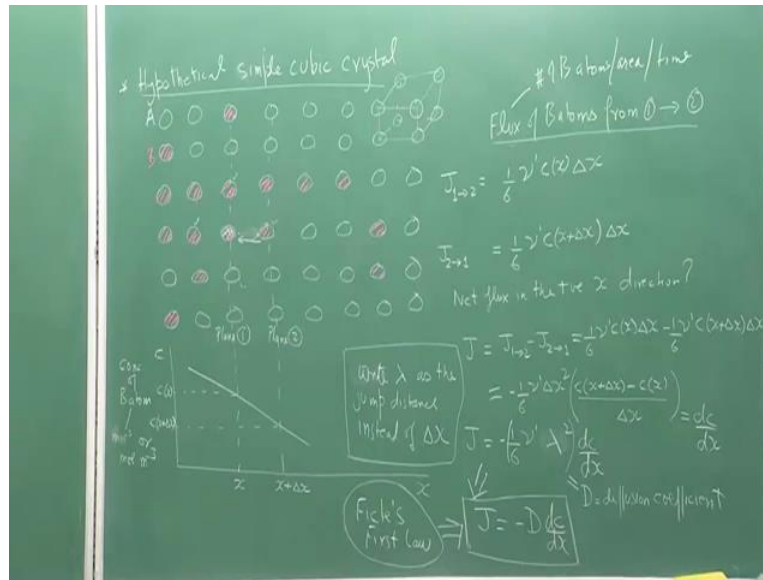 * Hypothetical simple cubic crystal
A
B
Plane ① Plane ②
C
Conc
of
B atom
mol m⁻³
C(x)
C(x+Δx)
x x+Δx x
write λ as the
jump distance
instead of Δx
Fick's
First Law
# of B atoms/area/time
Flux of B atoms from ① → ②
J₁→₂ = 1/6 ν' c(x) Δx
J₂→₁ = 1/6 ν' c(x+Δx) Δx
Net flux in the +ve x direction?
J = J₁→₂ - J₂→₁ = 1/6 ν' c(x) Δx - 1/6 ν' c(x+Δx) Δx
= -1/6 ν' Δx² ( (c(x+Δx) - c(x)) / Δx ) = dc/dx
J = -(1/6 ν' λ²) dc/dx
= D = diffusion coefficient
⇒ J = -D dc/dx